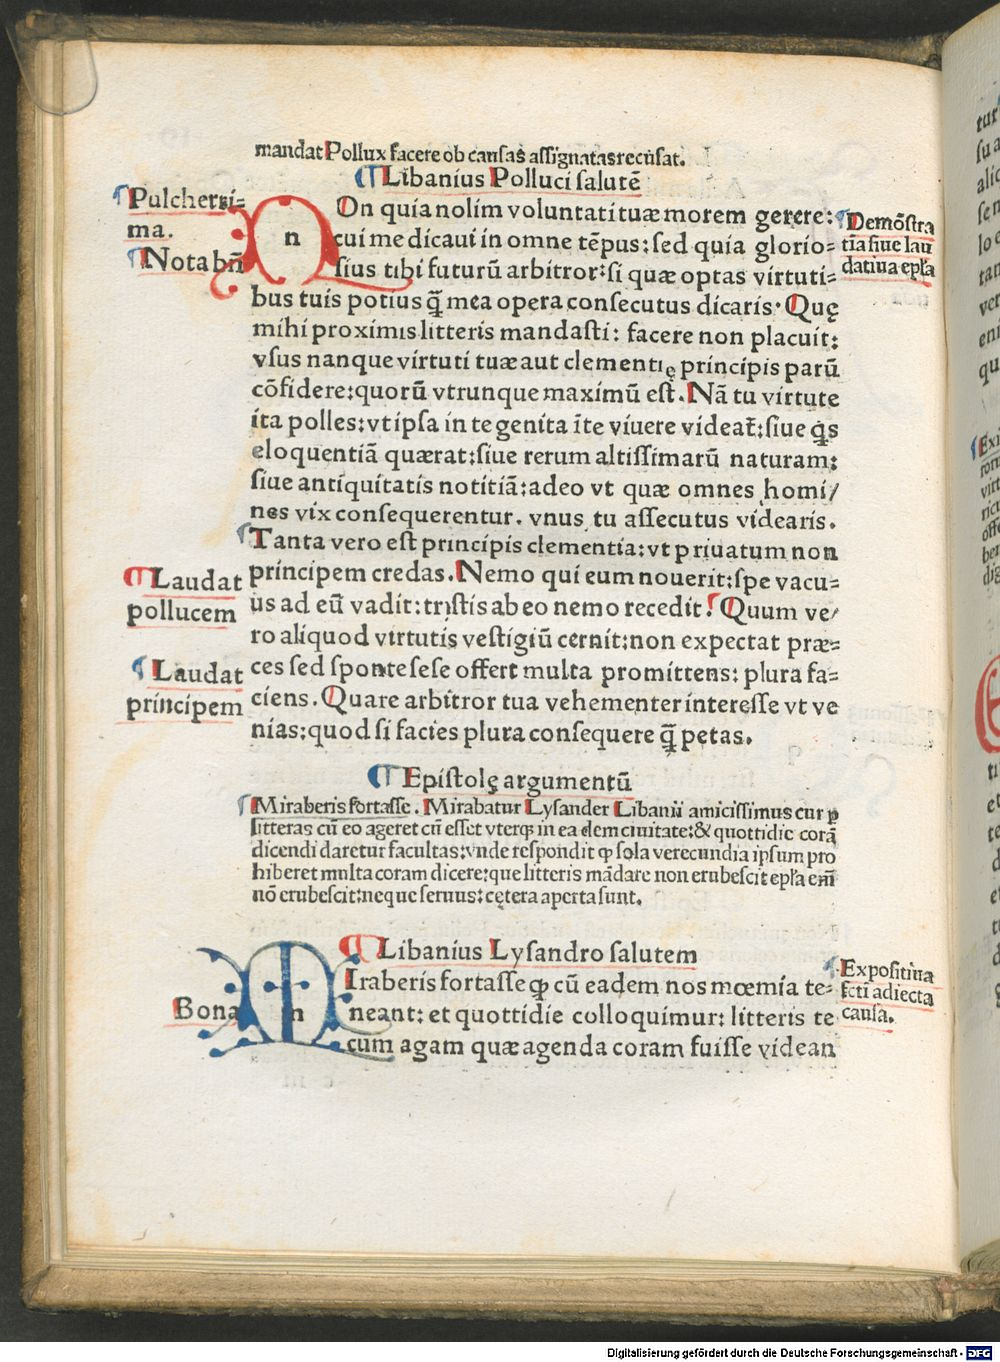 mandat Pollux facere ob causas assignatas recusat.
¶ Libanius Polluci salutē
Pulcherri=
ma.
Nota bn̄
n
On quia nolim voluntati tuæ morem gerere:
cui me dicaui in omne tēpus: sed quia glorio=
sius tibi futurū arbitror: si quæ optas virtuti=
bus tuis potius q̄ mea opera consecutus dicaris. Quę
mihi proximis litteris mandasti: facere non placuit:
vsus nanque virtuti tuæ aut clementię principis parū
cōfidere: quorū vtrunque maximū est. Nā tu virtute
ita polles: vt ipsa in te genita īte viuere videat̄: siue q̇s
eloquentiā quærat: siue rerum altissimarū naturam:
siue antiquitatis notitiā: adeo vt quæ omnes homi/
nes vix consequerentur. vnus tu assecutus videaris.
Tanta vero est principis clementia: vt priuatum non
principem credas. Nemo qui eum nouerit: spe vacu=
us ad eū vadit: tristis ab eo nemo recedit. Quum ve/
ro aliquod virtutis vestigiū cernit: non expectat præ=
ces sed sponte sese offert multa promittens: plura fa=
ciens. Quare arbitror tua vehementer interesse vt ve
nias: quod si facies plura consequere q̄ petas.
Demōstra
tiā siue lau
datiua ep̄la
¶ Laudat
pollucem
¶ Laudat
principem
¶ Epistolę argumentū
Miraberis fortasse. Mirabatur Lysander Libanii amicissimus cur ꝑ
litteras cū eo ageret cū esset vterqꝫ in ea dem ciuitate: & quottidie corā
dicendi daretur facultas: vnde respondit ꝙ sola verecundia ipsum pro
hiberet multa coram dicere: que litteris mādare non erubescit ep̄la em̄
nō erubescit: neque seruus: cętera aperta sunt.
¶ Libanius Lysandro salutem
Bona
m
Iraberis fortasse ꝙ cū eadem nos mœmia te=
neant: et quottidie colloquimur: litteris te
cum agam quæ agenda coram fuisse videan
Expositiua
fcti adiecta
causa.
Digitalisierung gefördert durch die Deutsche Forschungsgemeinschaft - DFG